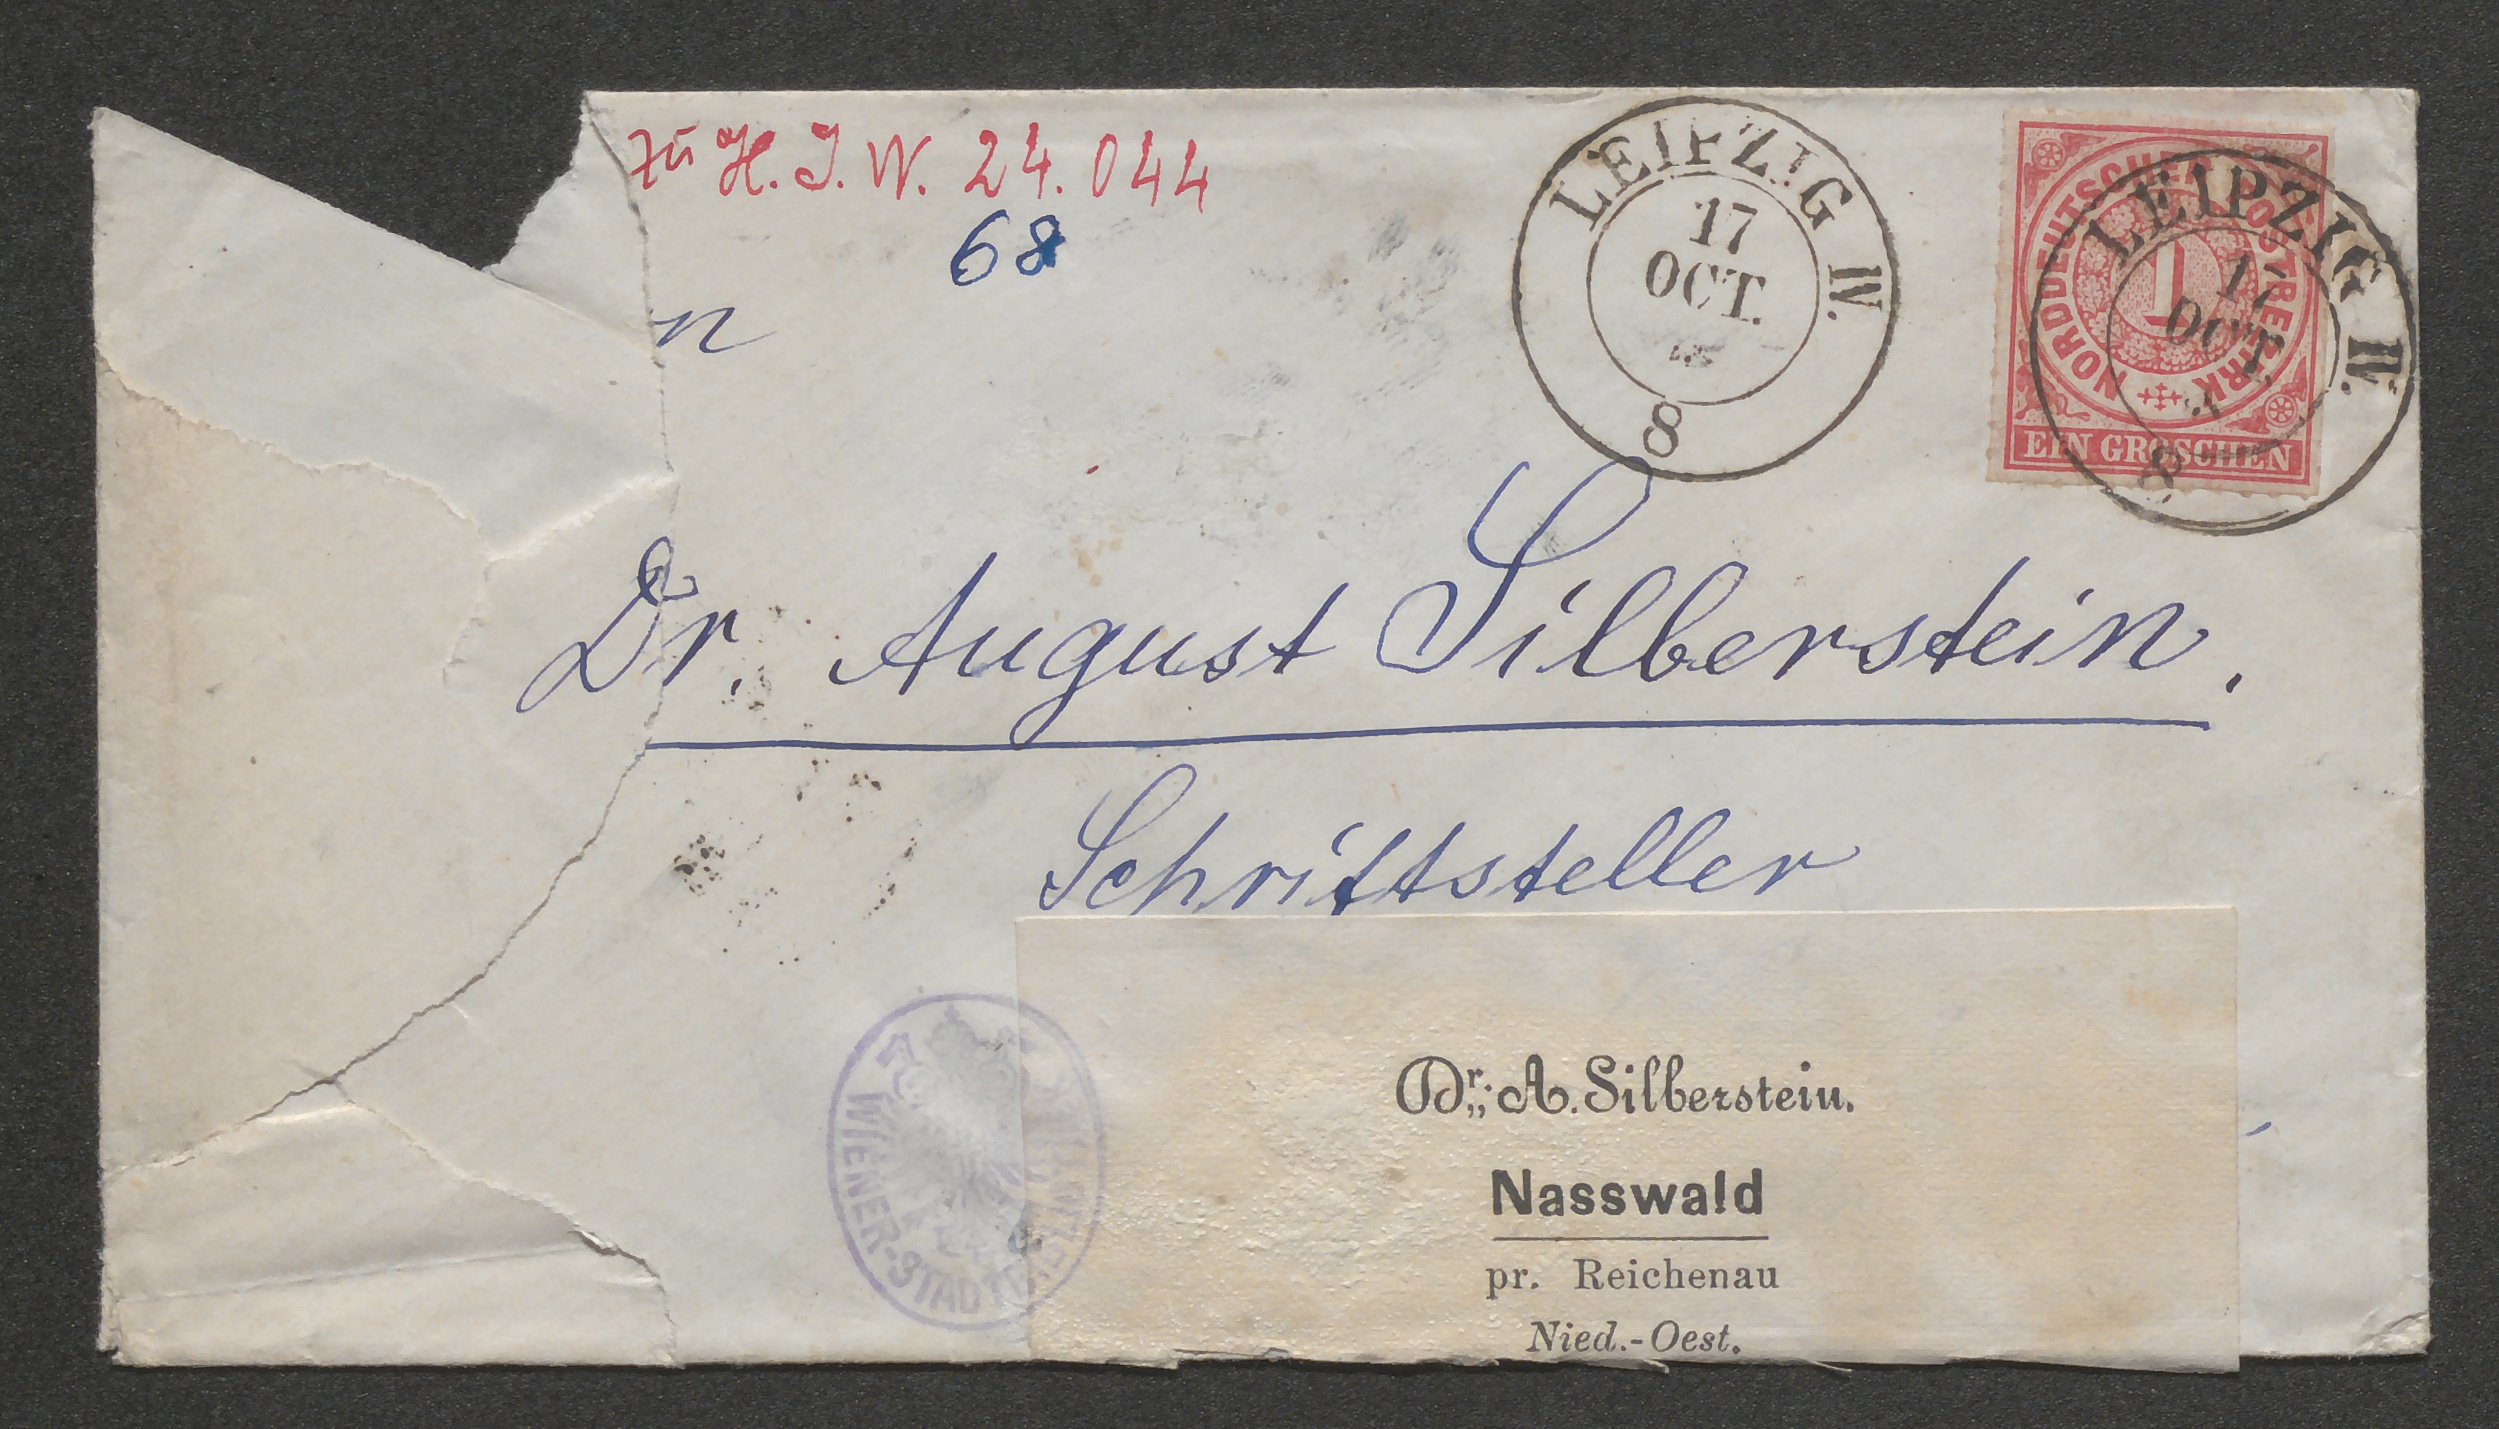 zu H. I. N. 24.044
68
n
LEIPZIG IV.
17
OCT.
8
NORDDEUTSCHER POSTBEZIRK
1
EIN GROSCHEN
LEIPZIG IV.
17
OCT.
8
Dr. August Silberstein.
Schriftsteller
WIENER-STADT
Dr. A. Silberstein.
Nasswald
pr. Reichenau
Nied.-Oest.